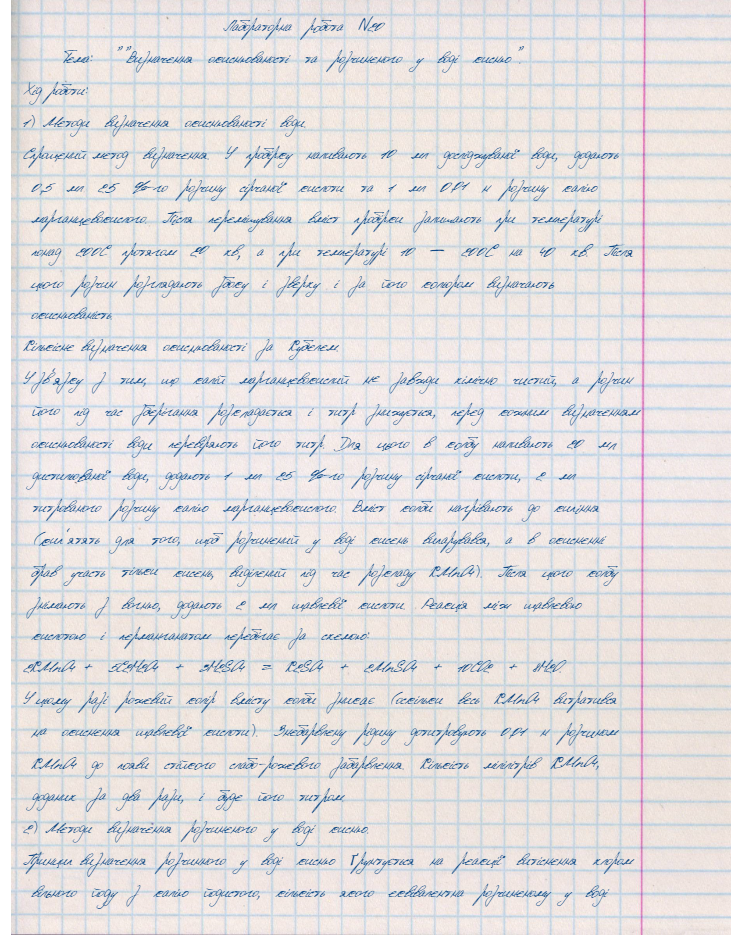 Лабораторна робота №20
Тема: ""Визначення окиснюваності та розчиненого у воді кисню".
Хід роботи:
1) Методи визначення окиснюваності води.
Спрощений метод визначення. У пробірку наливають 10 мл досліджуваної води, додають
0,5 мл 25 %-го розчину сірчаної кислоти та 1 мл 0,01 н розчину калію
марганцевокислого. Після перемішування вміст пробірки залишають при температурі
понад 200С протягом 20 хв, а при температурі 10 — 200С на 40 хв. Після
цього розчин розглядають збоку і зверху і за його кольором визначають
окиснюваність.
Кількісне визначення окиснюваності за Кубелем.
У зв'язку з тим, що калій марганцевокислий не завжди хімічно чистий, а розчин
його під час зберігання розкладається і титр знижується, перед кожним визначенням
окиснюваності води перевіряють його титр. Для цього в колбу наливають 20 мл
дистильованої води, додають 1 мл 25 %-го розчину сірчаної кислоти, 2 мл
титрованого розчину калію марганцевокислого. Вміст колби нагрівають до кипіння
(кип'ятять для того, щоб розчинений у воді кисень випарувався, а в окисненні
брав участь тільки кисень, виділений під час розкладу KMnO4). Після цього колбу
знімають з вогню, додають 2 мл щавлевої кислоти. Реакція між щавлевою
кислотою і перманганатом перебігає за схемою:
2KMnO4 + 5C2H2O4 + 3H2SO4 = K2SO4 + 2MnSO4 + 10CO2 + 8H2O.
У цьому разі рожевий колір вмісту колби зникає (оскільки весь KMnO4 витратився
на окиснення щавлевої кислоти). Знебарвлену рідину дотитровують 0,01 н розчином
KMnO4 до появи стійкого слабо-рожевого забарвлення. Кількість мілілітрів KMnO4,
доданих за два рази, і буде його титром.
2) Методи визначення розчиненого у воді кисню.
Принцип визначення розчинного у воді кисню ґрунтується на реакції витіснення хлором
вільного йоду з калію йодистого, кількість якого еквівалентна розчиненому у воді